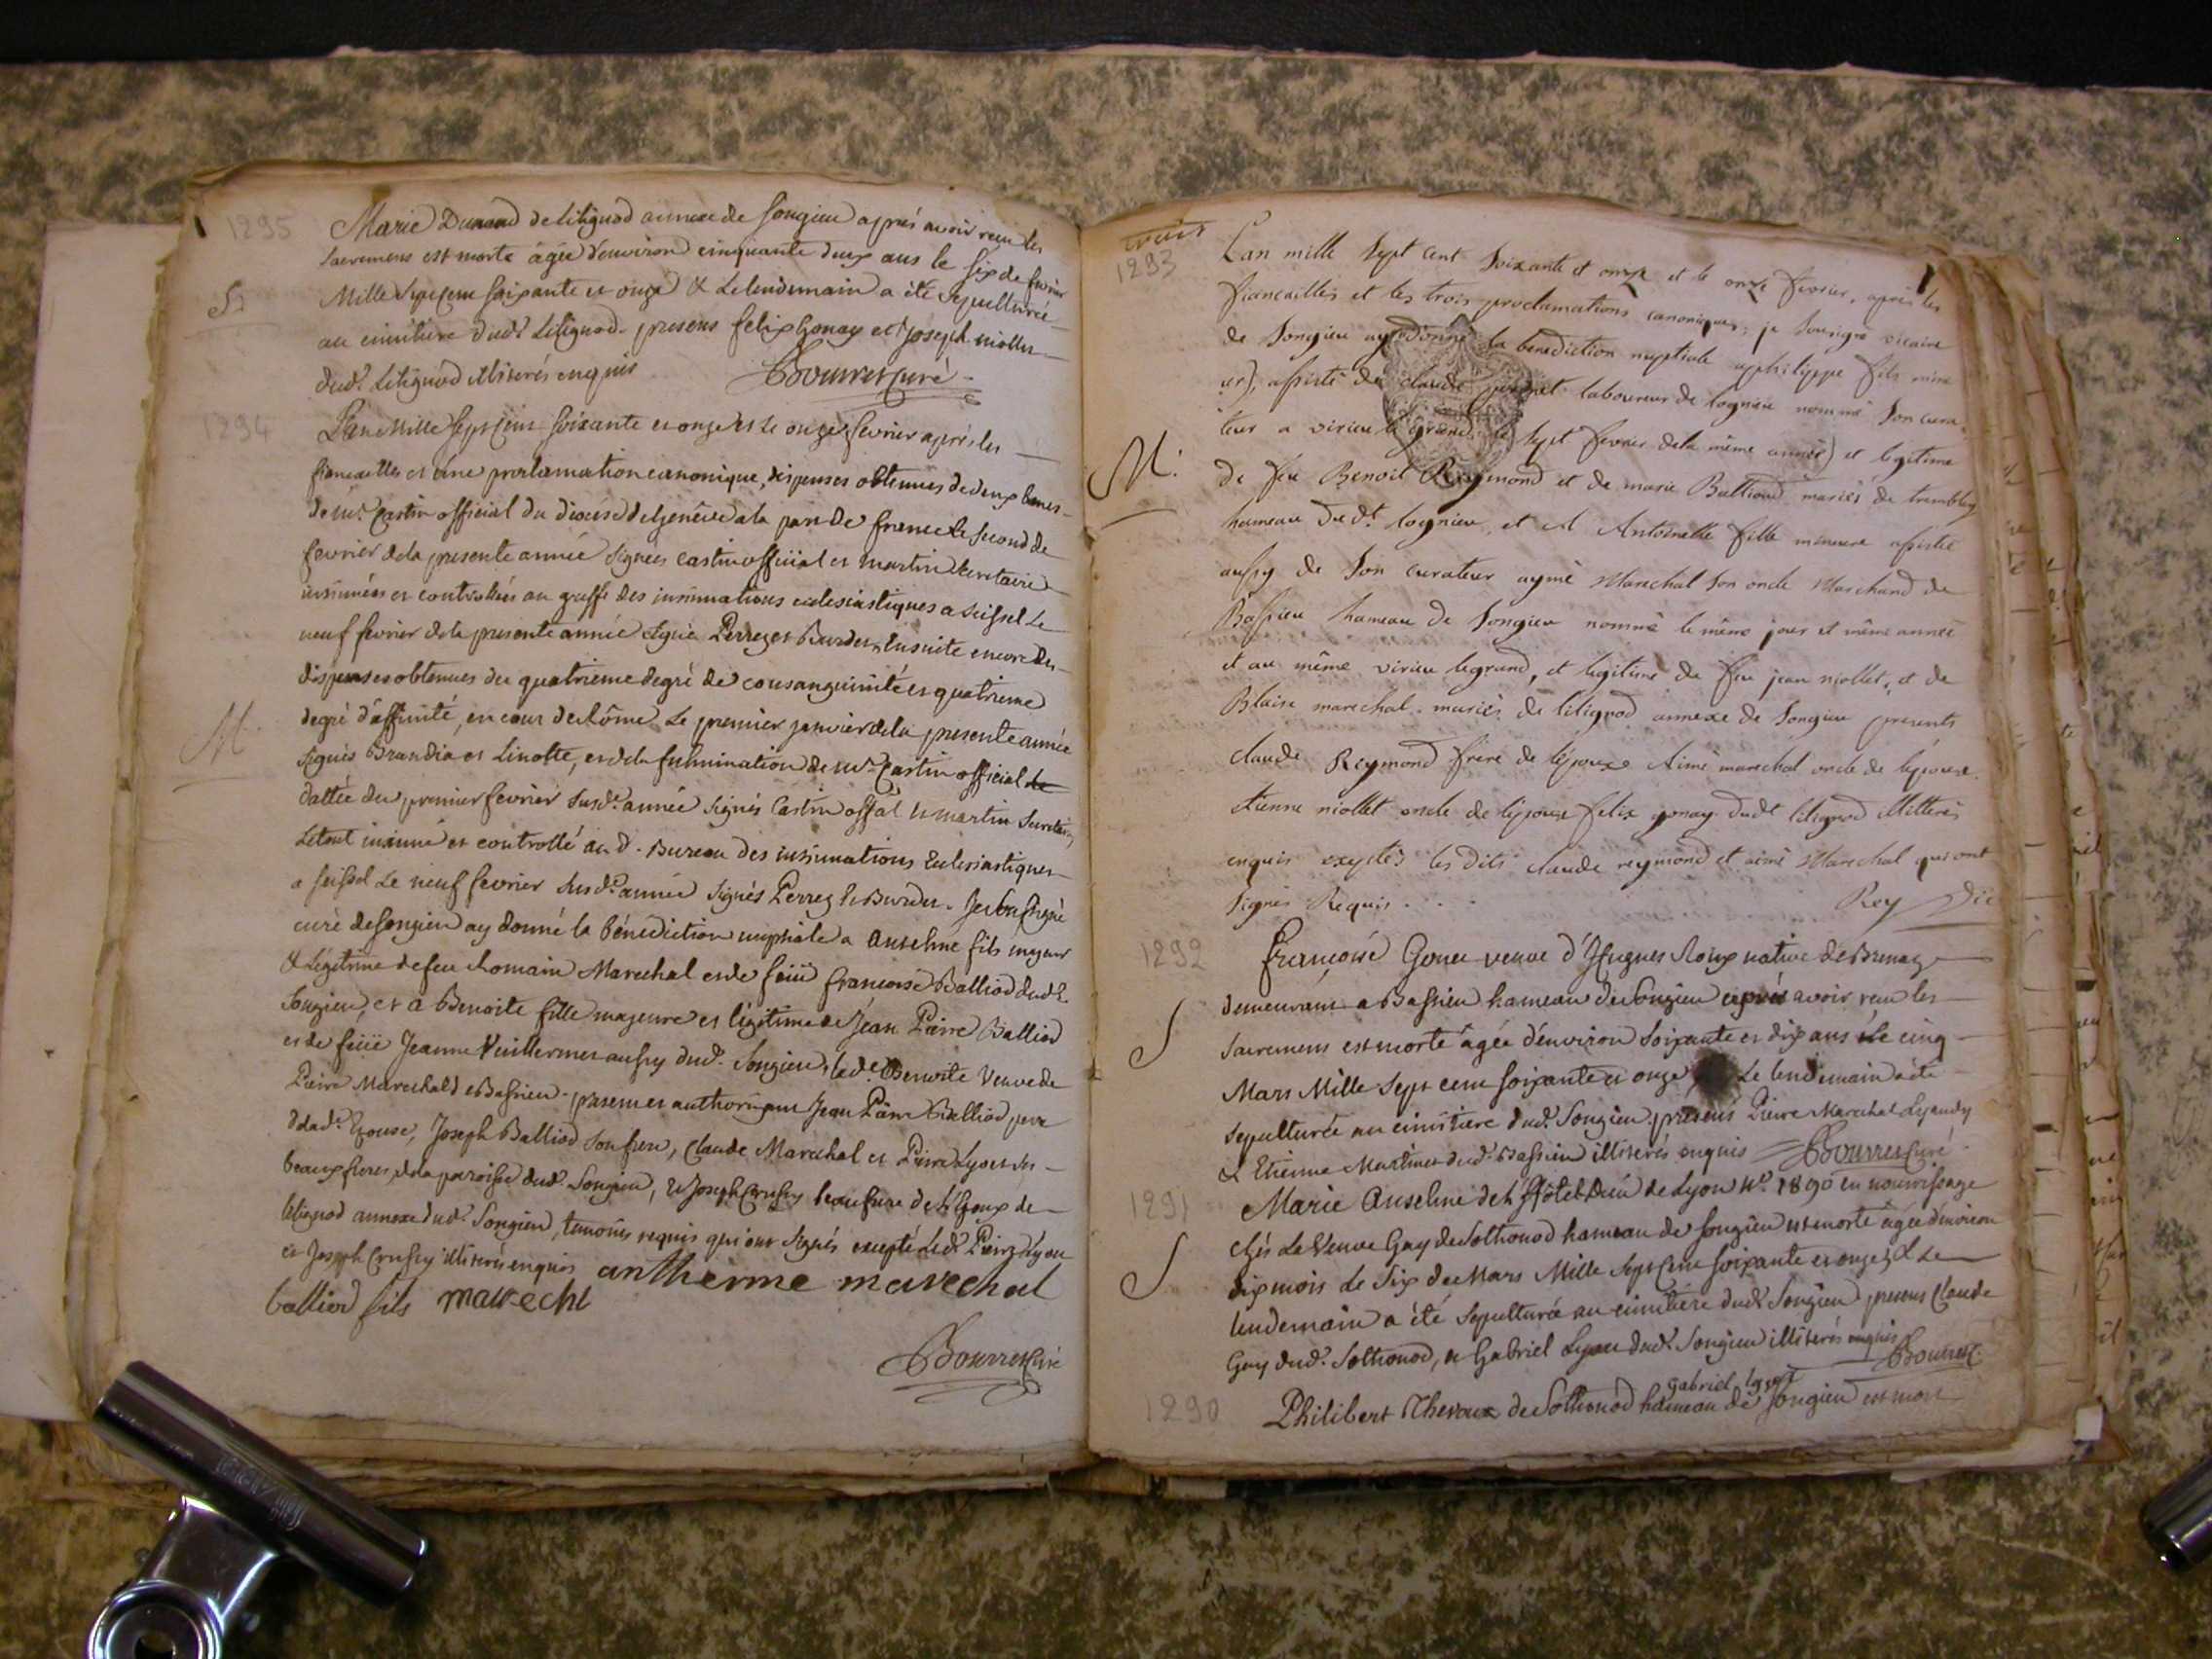 1295
Marie Dunand de Litignod annexe de Songieu aprés avoir reçu les
Sacremens est morte âgée d'environ cinquante deux ans le six de fevrier
S.
Mille Sept Cent soixante et onze & Le lendemain a été sepulturée
au cimitiere dud. Litignod. presens felix Gonay et Joseph miollet
dud. Litignod illiterés enquis Bourret Curé
1294
L'an Mille Sept Cent soixante et onze et le onze fevrier aprés les
fiancailles et une proclamation canonique, dispenses obtenues de deux bancs
de mr. Castin official du diocese de Genève de la part de france le second de
fevrier de la presente année signées Castin official et martin secretaire
insinuées et controllées au greffe des insinuations eclesiastiques a Seissel Le
neuf fevrier de la presente année signé Perrez et Burdet, Ensuite encore des
dispenses obtenues du quatrieme degré de consanguinité et quatrieme
degré d'affinité, en cour de Rôme Le premier janvier de la presente année
M.
signés Grandia et Linotte, et de la fulmination de mr. Castin official
dattée du premier fevrier susd. année signés Castin offal et martin secretaire,
Le tout insinué et controllé au d. Bureau des insinuations Eclesiastiques
a seissel Le neuf fevrier susd. année signés Perrez et Burdet. Je soussigné
curé de songieu ay donné la bénédiction nuptiale a Anselme fils majeur
& Légitime de feu Romain Marechal et de feüe françoise Balliod dud.
Songieu, et a Benoite fille majeure et légitime de Jean Pierre Balliod
et de feüe Jeanne Vuillermet aussy dud. Songieu, lad. Benoite Veuve de
Pierre Marechal de Bassieu. presens et authorisant Jean Pierre Balliod pere
de lad. Epouse, Joseph Balliod son frere, Claude Marechal et Pierre Lyon ses
beaux freres, de la paroisse dud. Songieu, & Joseph Crussy beau frere de l'Epoux de
litignod annexe dud. Songieu, temoins requis qui ont signés excepté led. Pierre Lyon
et Joseph Crussy illiterés enquis antherme marechal
balliod fils marechl
Bourret Curé
1293
L'an mille sept cent soixante et onze et le onze fevrier, après les
fiancailles et les trois proclamations canoniques, je sousigné vicaire
de Songieu ay donné la benediction nuptiale a philippe fils mine
ur), assisté de claude laboureur de lognieu nommé son cura
teur a virieu le grand le sept fevrier de la même année) et legitime
M.
de feu Benoit Reymond et de marie Balliod mariés de trembley
hameau du dt. lognieu, et a Antoinette fille mineure assistée
aussy de son curateur aymé Marechal son oncle Marchand de
Bassieu hameau de Songieu nommé le même jour et même année
et au même virieu le grand, et legitime de feu jean miollet, et de
Blaise marechal mariés de litignod annexe de Songieu presents
claude Reymond frere de l'époux Aimé marechal oncle de l'épouse
Etienne miollet oncle de l'épouse felix gonay dudt litignod illitterés
enquis exceptés les dits claude reymond et aimé Marechal qui ont
signés Requis . . . Rey Vic
1292
françoise Gonet veuve d'Hugues Roux native de Brenaz
demeurant a Bassieu hameau de Songieu aprés avoir reçu les
S
Sacremens est morte âgée d'environ soixante et dix ans Le cinq
Mars Mille Sept cent soixante et onze Le lendemain a été
sepulturée au cimitiere dud. Songieu presens Pierre Marechal
& Etienne Martinet dud. Bassieu illiterés enquis Bourret Curé
1291
Marie Anselme de L'Hôtel Dieu de Lyon No. 1890 en nourrissage
S
chés La Veuve Guy de Sothonod hameau de Songieu est morte âgée d'environ
dix mois le six de Mars Mille Sept Cent soixante et onze, & Le
lendemain a été sepulturée au cimitiere dud. Songieu presens Claude
Guy dud. Sothonod, et Gabriel Lyon dud. Songieu illiterés enquis
Bourret C.
gabriel lyon
1290
Philibert Thevoux de Sothonod hameau de Songieu est mort